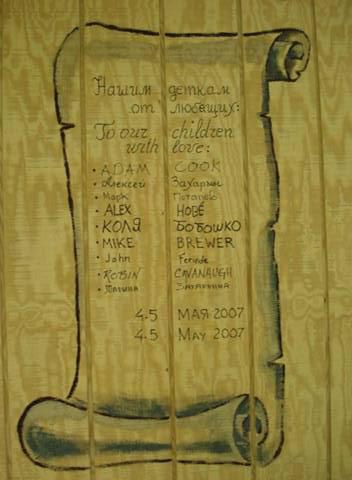 Нашим деткам
от любящих:
To our children
with love:
• ADAM COOK
• Алексей Захарин
• Марк
• ALEX HOBÉ
• КОЛЯ БОБОШКО
• MIKE BREWER
• John
• ROBIN CAVANAUGH
•
4.5 МАЯ 2007
4.5 May 2007